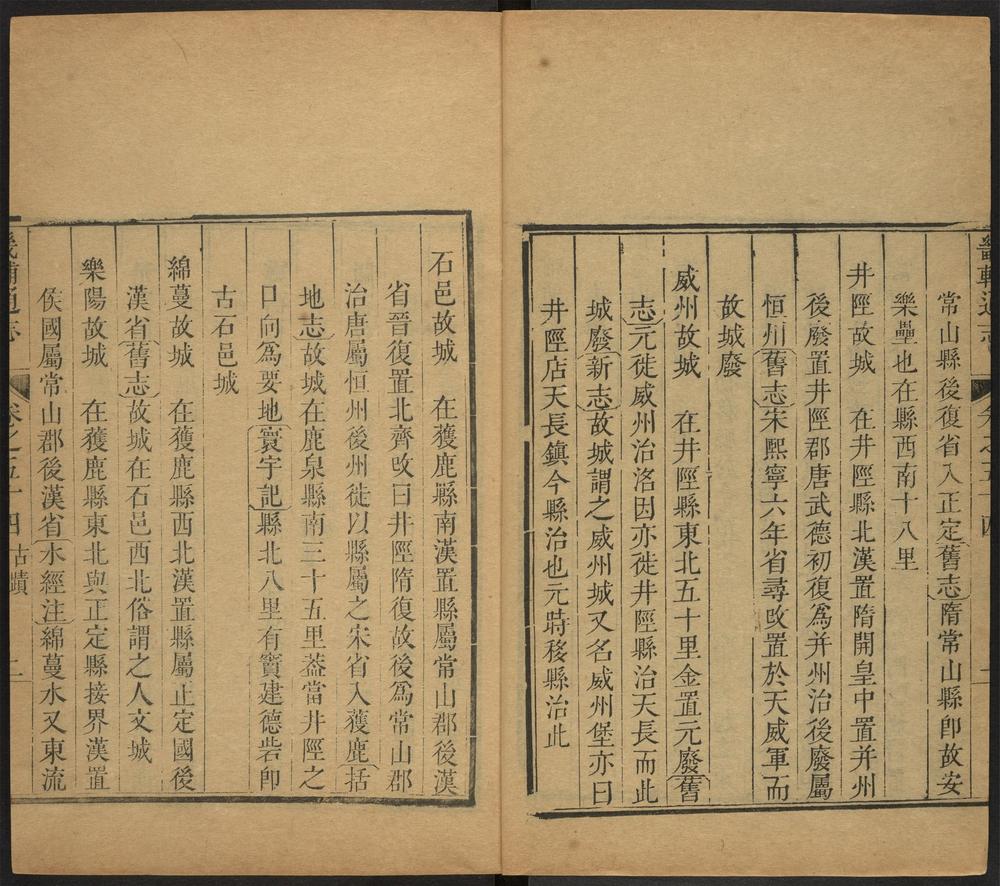 畿輔通志 卷之五十四 二
常山縣後復省入正定〔舊志〕隋常山縣卽故安
樂壘也在縣西南十八里
井陘故城 在井陘縣北漢置隋開皇中置并州
後廢置井陘郡唐武德初復爲并州治後廢屬
恒州〔舊志〕宋熙寧六年省尋改置於天威軍而
故城廢
威州故城 在井陘縣東北五十里金置元廢〔舊
志〕元徙威州治洛因亦徙井陘縣治天長而此
城廢〔新志〕故城謂之威州城又名威州堡亦曰
井陘店天長鎮今縣治也元時移縣治此
石邑故城 在獲鹿縣南漢置縣屬常山郡後漢
省晉復置北齊改曰井陘隋復故後爲常山郡
治唐屬恒州後州徙以縣屬之宋省入獲鹿〔括
地志〕故城在鹿泉縣南三十五里葢當井陘之
口向爲要地〔寰宇記〕縣北八里有竇建德砦卽
古石邑城
綿蔓故城 在獲鹿縣西北漢置縣屬正定國後
漢省〔舊志〕故城在石邑西北俗謂之人文城
樂陽故城 在獲鹿縣東北與正定縣接界漢置
侯國屬常山郡後漢省〔水經注〕綿蔓水又東流
畿輔通志 卷之五十四 古蹟 二